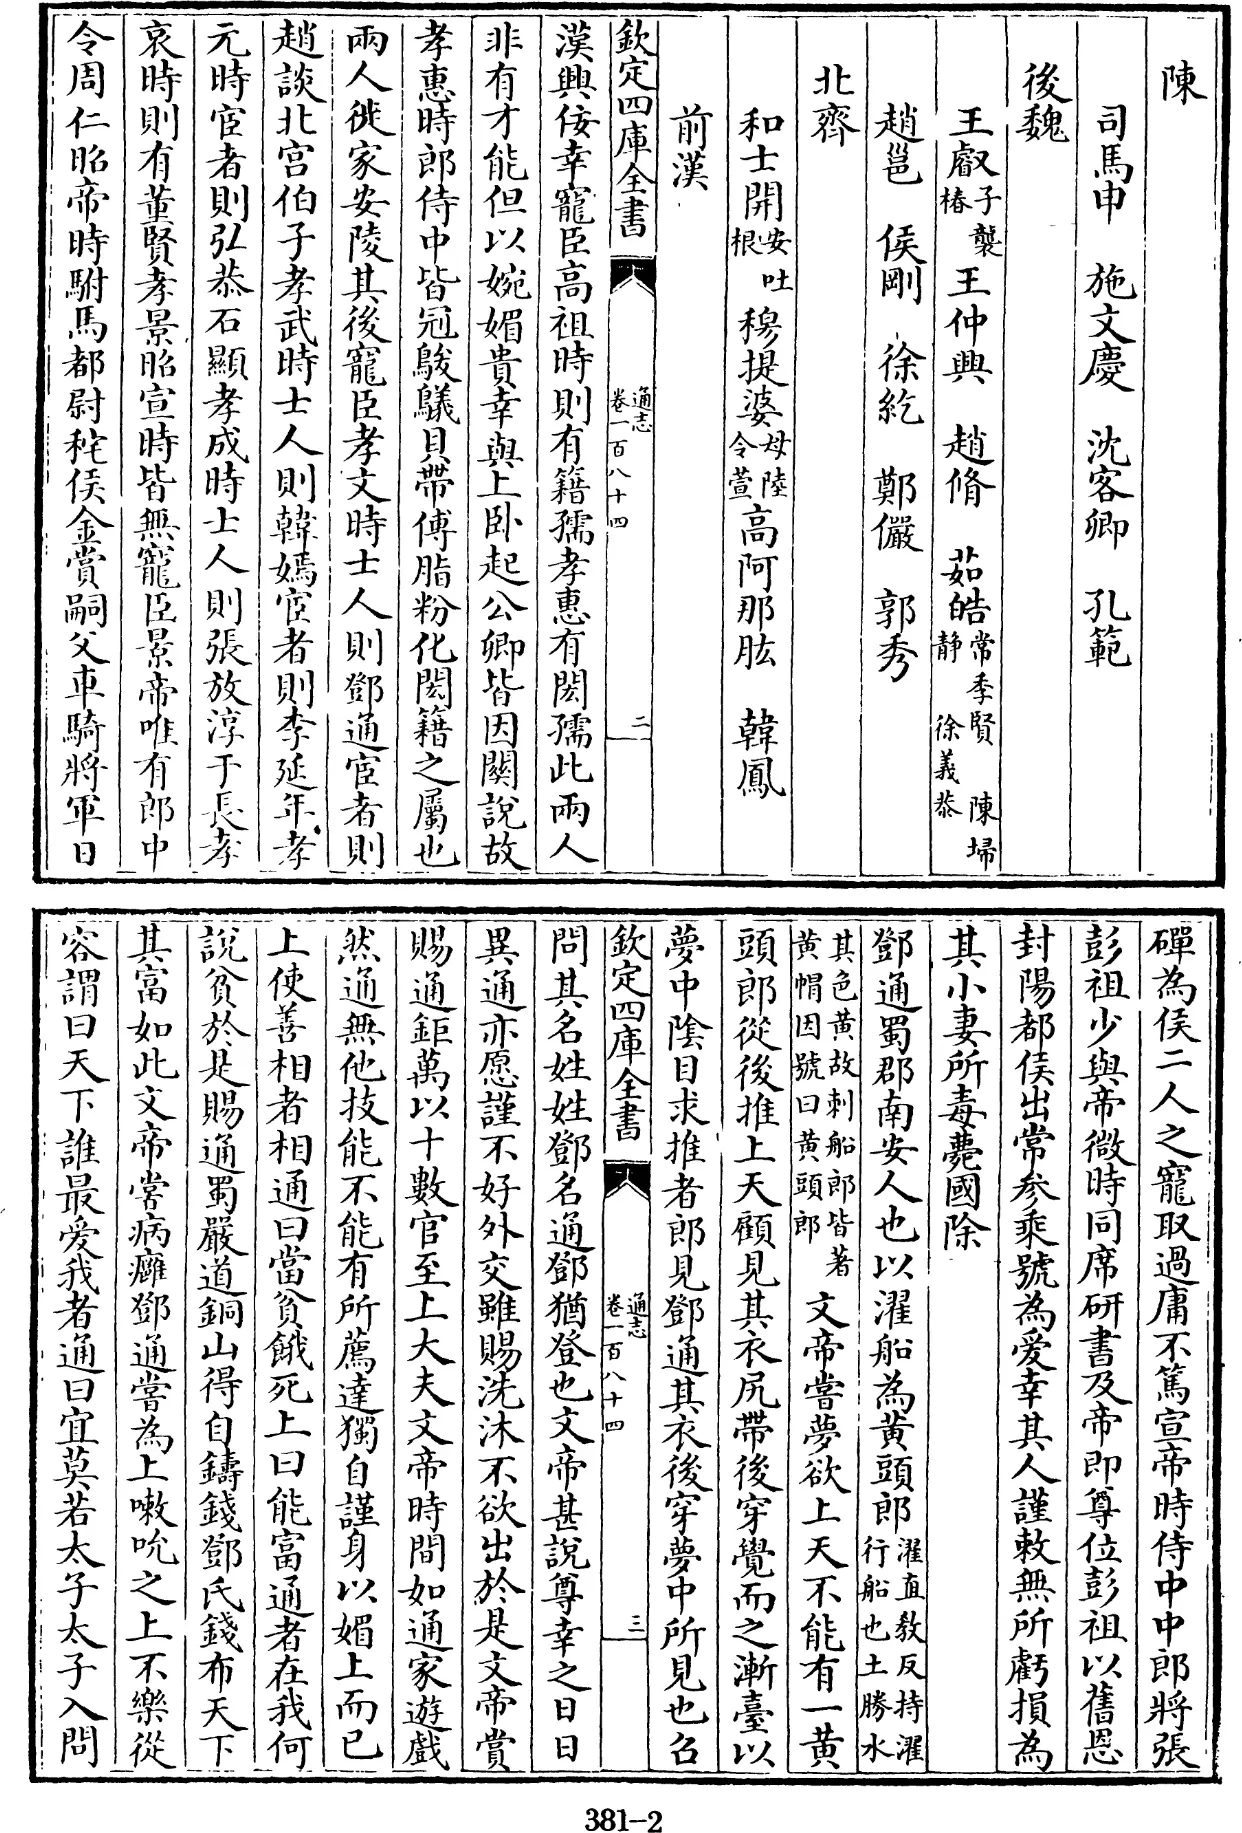 陳
司馬申　施文慶　沈客卿　孔範
後魏
王叡子襲椿　王仲興　趙脩　茹皓常季賢　陳埽静　徐義恭
趙邕　侯剛　徐紇　鄭儼　郭秀
北齊
和士開安吐根　穆提婆母陸令萱　高阿那肱　韓鳳
前漢
欽定四庫全書　通志卷一百八十四　二
漢興佞幸寵臣高祖時則有籍孺孝惠有閎孺此兩人
非有才能但以婉媚貴幸與上卧起公卿皆因關說故
孝惠時郎侍中皆冠鵔鸃貝帶傅脂粉化閎籍之屬也
兩人徙家安陵其後寵臣孝文時士人則鄧通宦者則
趙談北宮伯子孝武時士人則韓嫣宦者則李延年孝
元時宦者則弘恭石顯孝成時士人則張放淳于長孝
哀時則有董賢孝景昭宣時皆無寵臣景帝唯有郎中
令周仁昭帝時駙馬都尉秺侯金賞嗣父車騎將軍日
磾為侯二人之寵取過庸不篤宣帝時侍中中郎將張
彭祖少與帝微時同席研書及帝即尊位彭祖以舊恩
封陽都侯出常參乘號為愛幸其人謹敕無所虧損為
其小妻所毒薨國除
鄧通蜀郡南安人也以濯船為黄頭郎濯直敎反持濯行船也土勝水
其色黄故刺船郎皆著黄帽因號曰黄頭郎　文帝嘗夢欲上天不能有一黄
頭郎從後推上天顧見其衣尻帶後穿覺而之漸臺以
夢中陰目求推者郎見鄧通其衣後穿夢中所見也召
欽定四庫全書　通志卷一百八十四　三
問其名姓姓鄧名通鄧猶登也文帝甚說尊幸之日日
異通亦愿謹不好外交雖賜洗沐不欲出於是文帝賞
賜通鉅萬以十數官至上大夫文帝時間如通家遊戲
然通無他技能不能有所薦達獨自謹身以媚上而已
上使善相者相通曰當貧餓死上曰能富通者在我何
說貧於是賜通蜀嚴道銅山得自鑄錢鄧氏錢布天下
其富如此文帝嘗病癰鄧通嘗為上嗽吮之上不樂從
容謂曰天下誰最愛我者通曰宜莫若太子太子入問
381-2